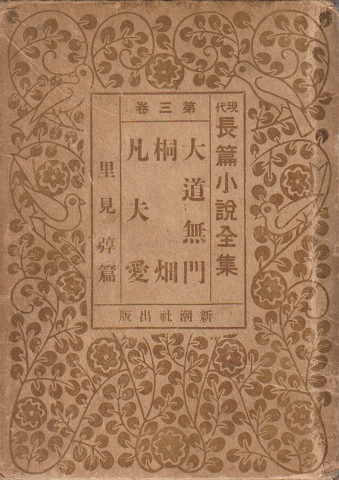 現代長篇小說全集
第三卷
大道無門
桐畑
凡夫愛
里見弴篇
新潮社出版